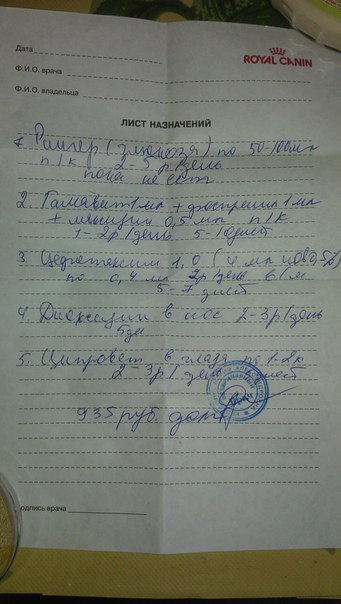 Дата
ROYAL CANIN
Ф.И.О. врача
Ф.И.О. владельца
ЛИСТ НАЗНАЧЕНИЙ
1. Рингер (глюкоза) по 50-100мл
п/к 2-3 р/день
пока не ест
2. Гамавит 1мл + 1мл
+ 0,5 мл п/к
1-2р/день 5-10дней
3. Цефотаксим 1,0 (4 мл ново 0,5%)
по 0,4 мл 2р/день в/м
5-7 дней
4. Диоксидин в нос 2-3р/день
5дн
5. Ципровет в глаза по 1-2к
2-3р/день дней
935 руб. долг
подпись врача